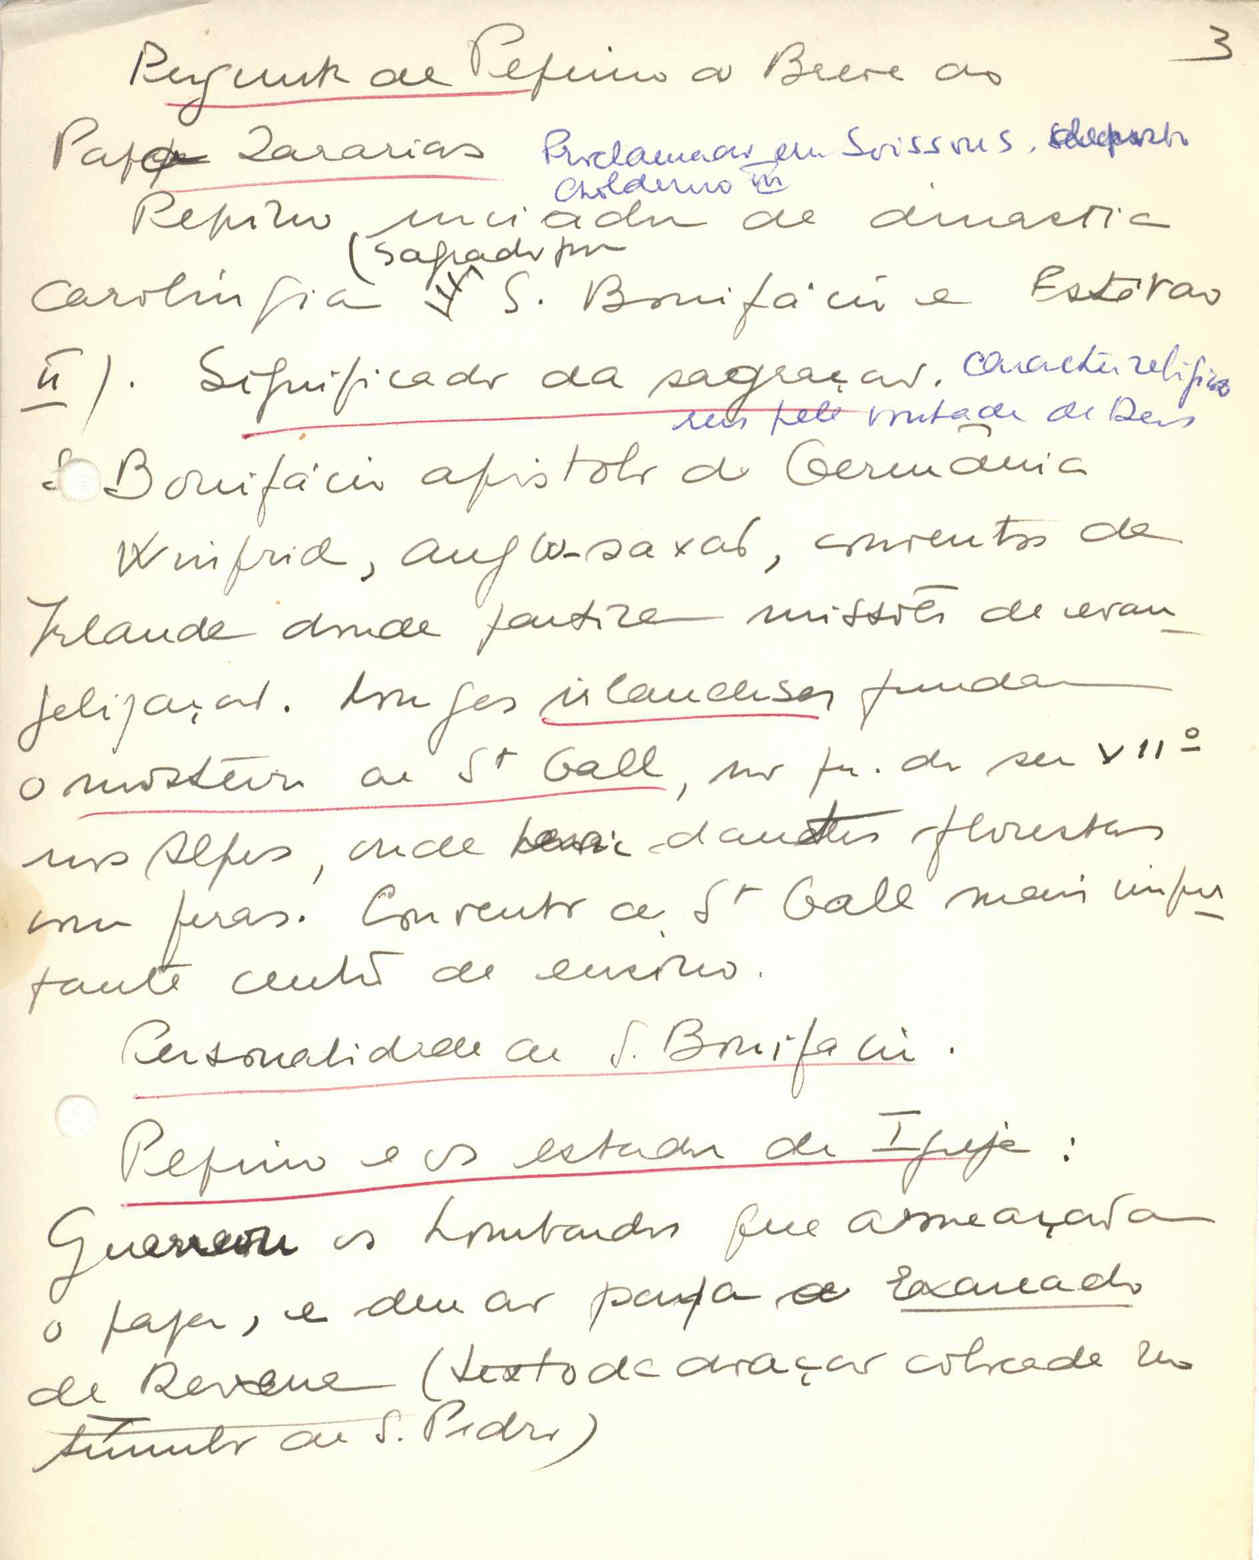 3
Pergunta de Pepino o Breve ao
Papa Zacarias Proclamado em Soissons, deposto
Childerico III
Pepino, iniciador da dinastia
(sagrado por
carolíngia S. Bonifácio e Estêvão
II). Significado da sagração. carácter religioso
reis pela vontade de Deus
S Bonifácio apóstolo da Germânia
Winfrid, anglo-saxão, conventos da
Irlanda donde partiram missões de evan-
gelização. Monges irlandeses fundam
o mosteiro de St Gall, no pr. do sec VIIº
nos Alpes, onde havia dantes florestas
com feras. Convento de St Gall mais impor-
tante centro de ensino.
Personalidade de S. Bonifácio.
Pepino e os estados da Igreja:
Guerreou os Lombardos que ameaçavam
o papa, e deu ao papa o Exarcado
de Ravena (texto da doação colocado no
túmulo de S. Pedro)